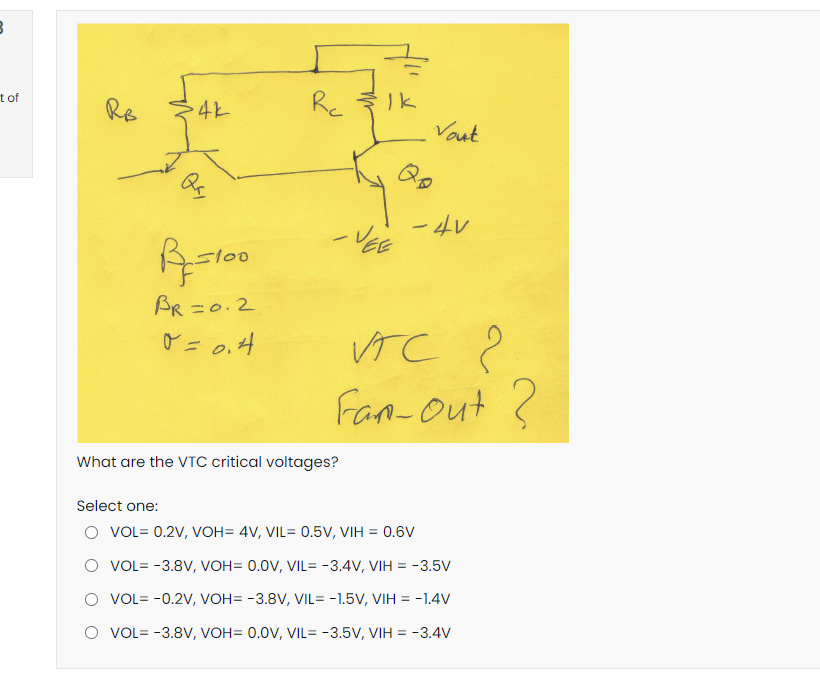 3
t of
RB 4k Rc 1k
Vout
QI QO
-VEE -4V
βF=100
βR=0.2
σ=0.4
VTC ?
Fan-Out ?
What are the VTC critical voltages?
Select one:
VOL= 0.2V, VOH= 4V, VIL= 0.5V, VIH = 0.6V
VOL= -3.8V, VOH= 0.0V, VIL= -3.4V, VIH = -3.5V
VOL= -0.2V, VOH= -3.8V, VIL= -1.5V, VIH = -1.4V
VOL= -3.8V, VOH= 0.0V, VIL= -3.5V, VIH = -3.4V